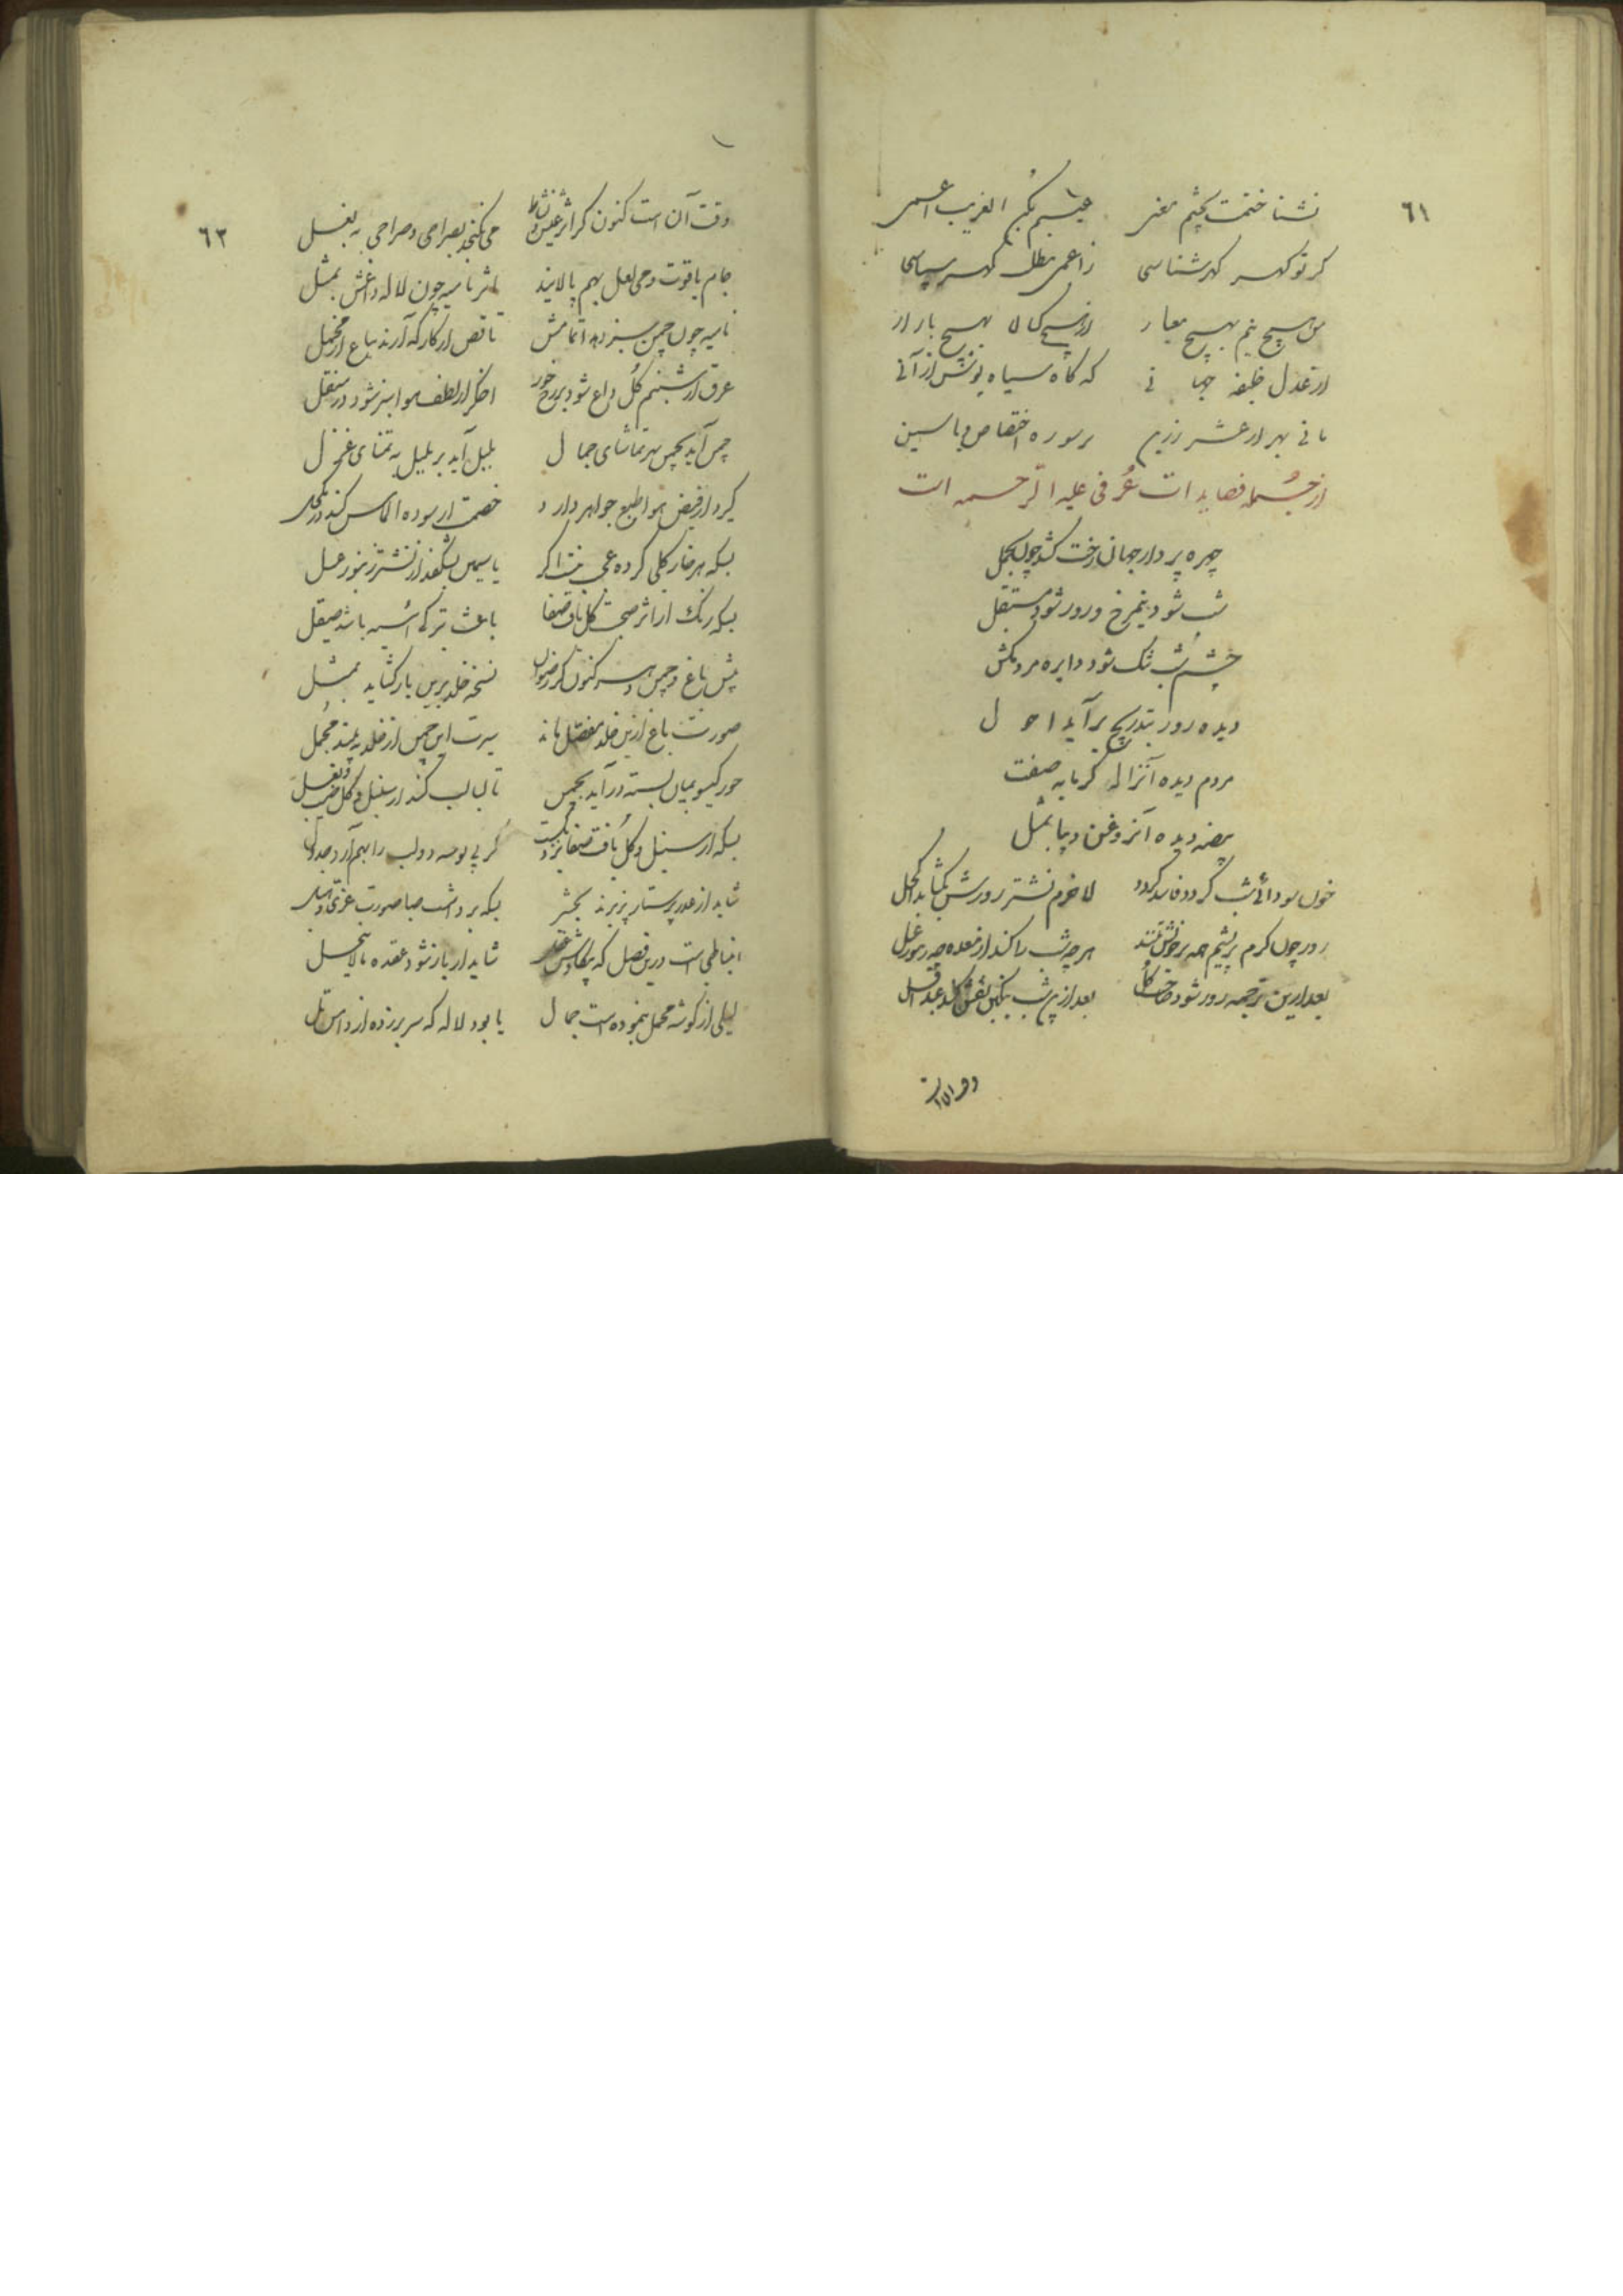 ٦١
نشناختمت بچشم معنی عیبم مکن الغریب اعمی
گر تو گهر گهر شناسی ز اعمی مطلب گهر سپاسی
من هیچ نیم بهیچ معیار از هیچ کالا بهیچ بازار
از عدل خلیفه جهانی که کاه سیاه پوشش ارزانی
بر سوره اختصاص یاسین
از جمله قصایدات عُرفی علیه الرحمه است
چهره پرداز جهان رخت کشد چون بحمل
شب شود نیم رخ و روز شود مستقبل
چشم شب تنگ شود دایره مردمکش
دیده روز بتدریج برآید احول
مردم دیده آنزاله گرمابه صفت
بیضه دیده آنروغن دیبا بمثل
خون سودائی شب گردد فاسد گردد لاجرم نشتر روزش بگشاید اکحل
روز چون کرم بریشم همه بر خویش تند هرچه شب را کند از معده چو زنبور عسل
بعد ازین ترجمه روز شود بعد ازین شب بنگین نقش کند عبد اقل
٦٢
وقت آن است کنون کز اثر عیش و نشاط می نگنجد بصراحی و صراحی به بغل
جام یاقوت و می لعل بهم پالایند نامیه چون لاله و داغش بمثل
نامیه چون چمن سبز دهد اتمامش ناقص از کارگه آرند بباغ ار مخمل
عرق از شبنم گل داغ شود بر رخ حور اخگر از لطف هوا سبز شود در منقل
چمن آید بچمن بهر تماشای جمال بلبل آید بر بلبل به تمنای غزل
گیرد از فیض هوا طبع جواهر دارو خصمت ار سوده الماس کند در
بسکه هر خار گلی کرده عجب نیست اگر یاسمین بشکفد از نشتر زنبور عسل
بسکه رنگ از اثر صحبت گل یافت صفا باعث تیرگی آئینه باشد صیقل
پیش باغ و چمن دهر کنون گر رضوان نسخه خلد برین باز گشاید بمثل
صورت باغ ازین خلد مفصل یابد سیرت این چمن از خلد به بیند مجمل
حور گیسو بمیان بسته درآید بچمن تا لبالب کند از سنبل و گل جیب و بغل
بسکه از سنبل و گل یافت صفا نزدیکست گر پی بوسه دو لب را بهم آرد جدول
شاید از عذر پرستار پذیرند بحشر بسکه برداشت صبا صورت عزّی و هبل
انبساطی است درین فصل که شاید ار باز شود عقده مالاینحل
لیلی از گوشه محمل بنموده است جمال یا بود لاله که سر بر زده از دامن تل